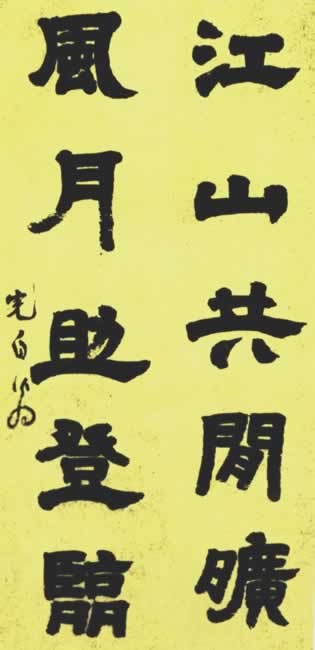 江山共閒曠
風月助登臨
完白